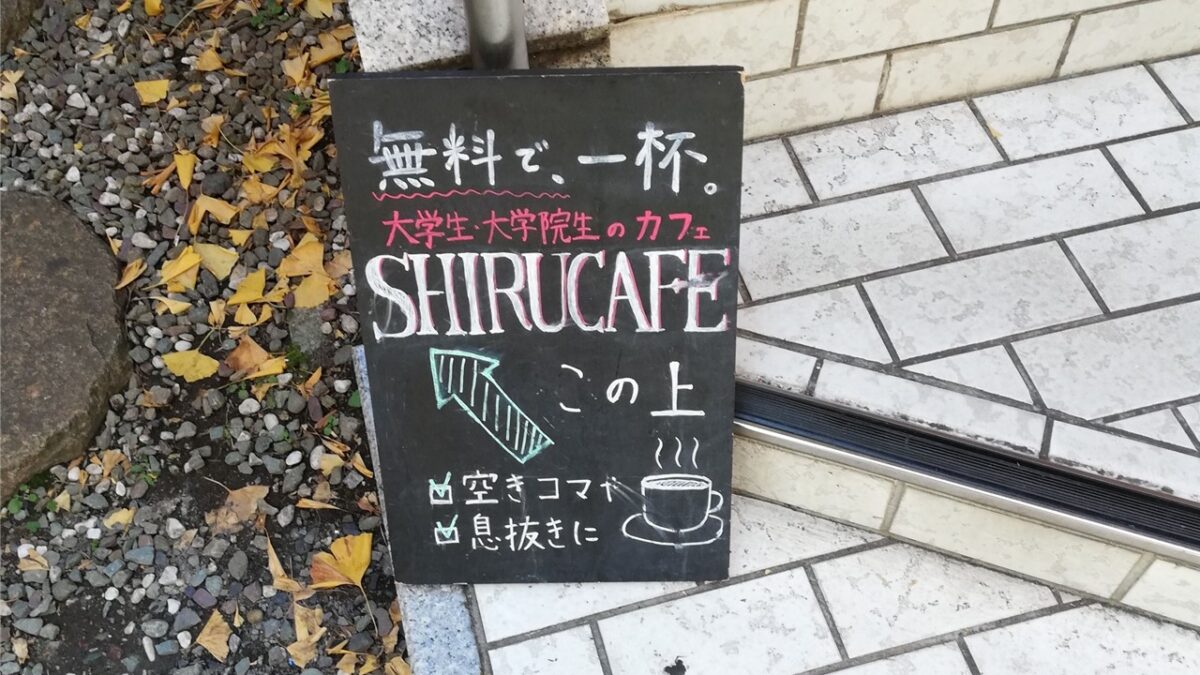 無料で、一杯。
大学生・大学院生のカフェ
SHIRUCAFE
この上
空きコマや
息抜きに